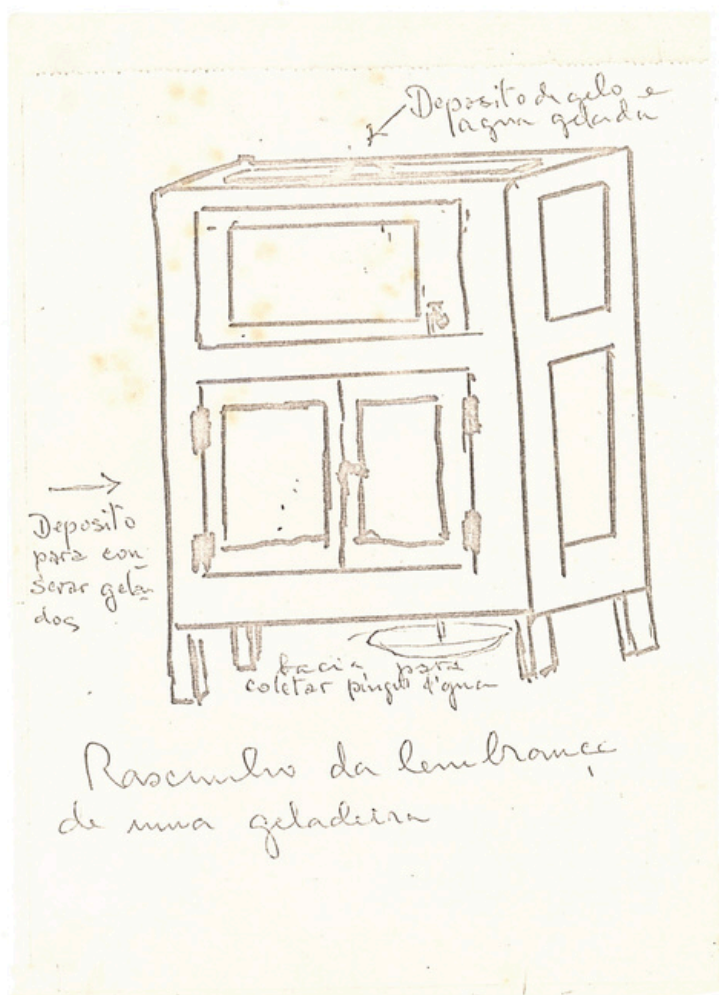 Deposito de gelo e
agua gelada
Deposito
para con
servar gela
dos
bacia para
coletar pingo d'água
Rascunho da lembrança
de uma geladeira